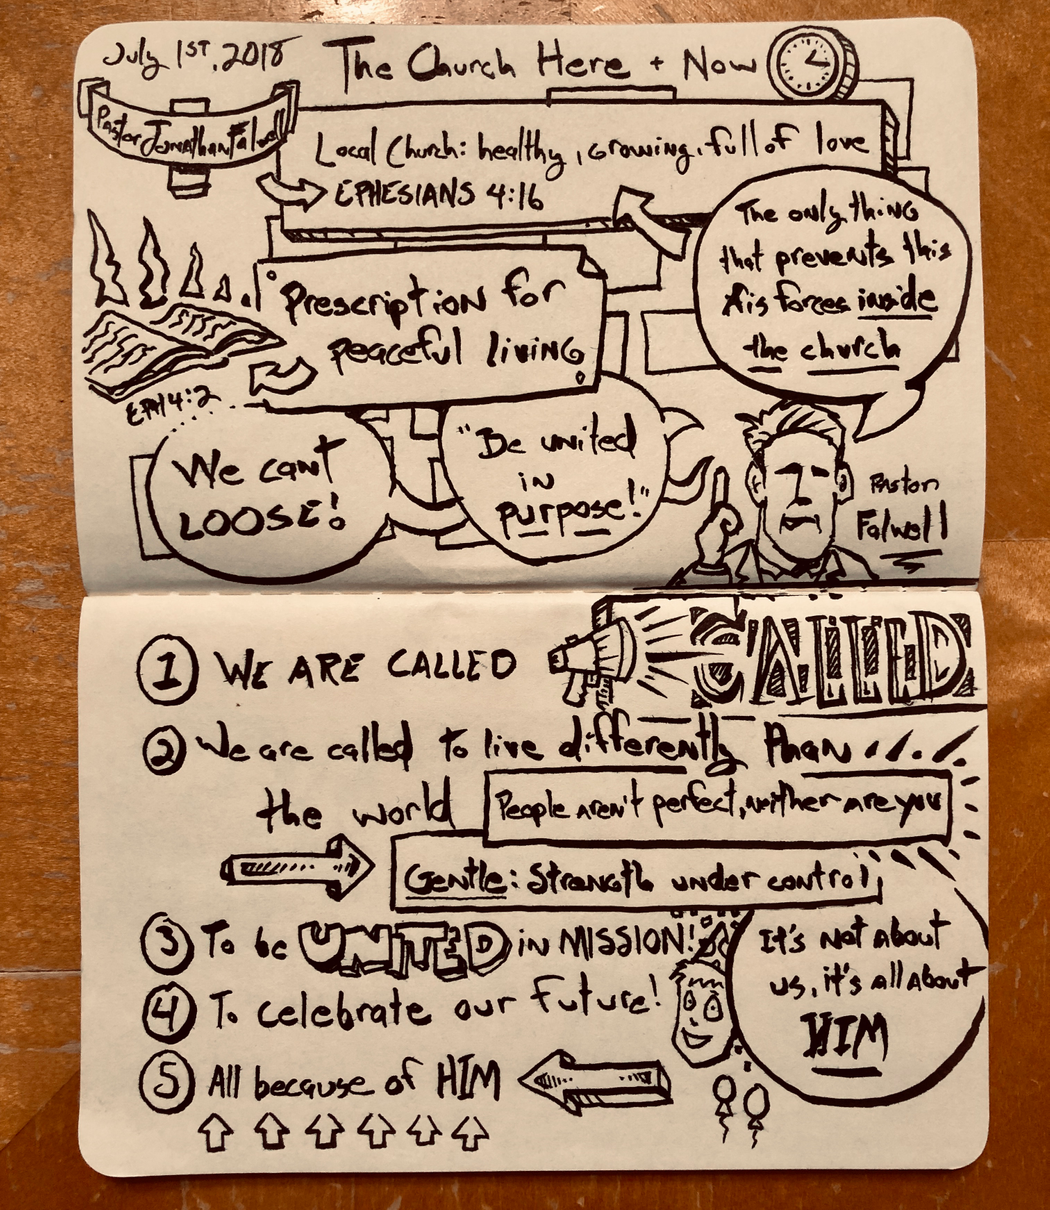 July 1ST, 2018
The Church Here + Now
Pastor Jonathan Falwell
Local Church: healthy, growing, full of love
EPHESIANS 4:16
The only thing
that prevents this
is forces inside
the church
Prescription for
peaceful living
EPH 4:2
We cant
LOOSE!
"Be united
in
purpose!"
Pastor
Falwell
1 WE ARE CALLED
CALLED
2 We are called to live differently than
the world
People aren't perfect, neither are you
Gentle: Strength under control
3 To be UNITED in MISSION!
4 To celebrate our future!
It's not about
us, it's all about
HIM
5 All because of HIM